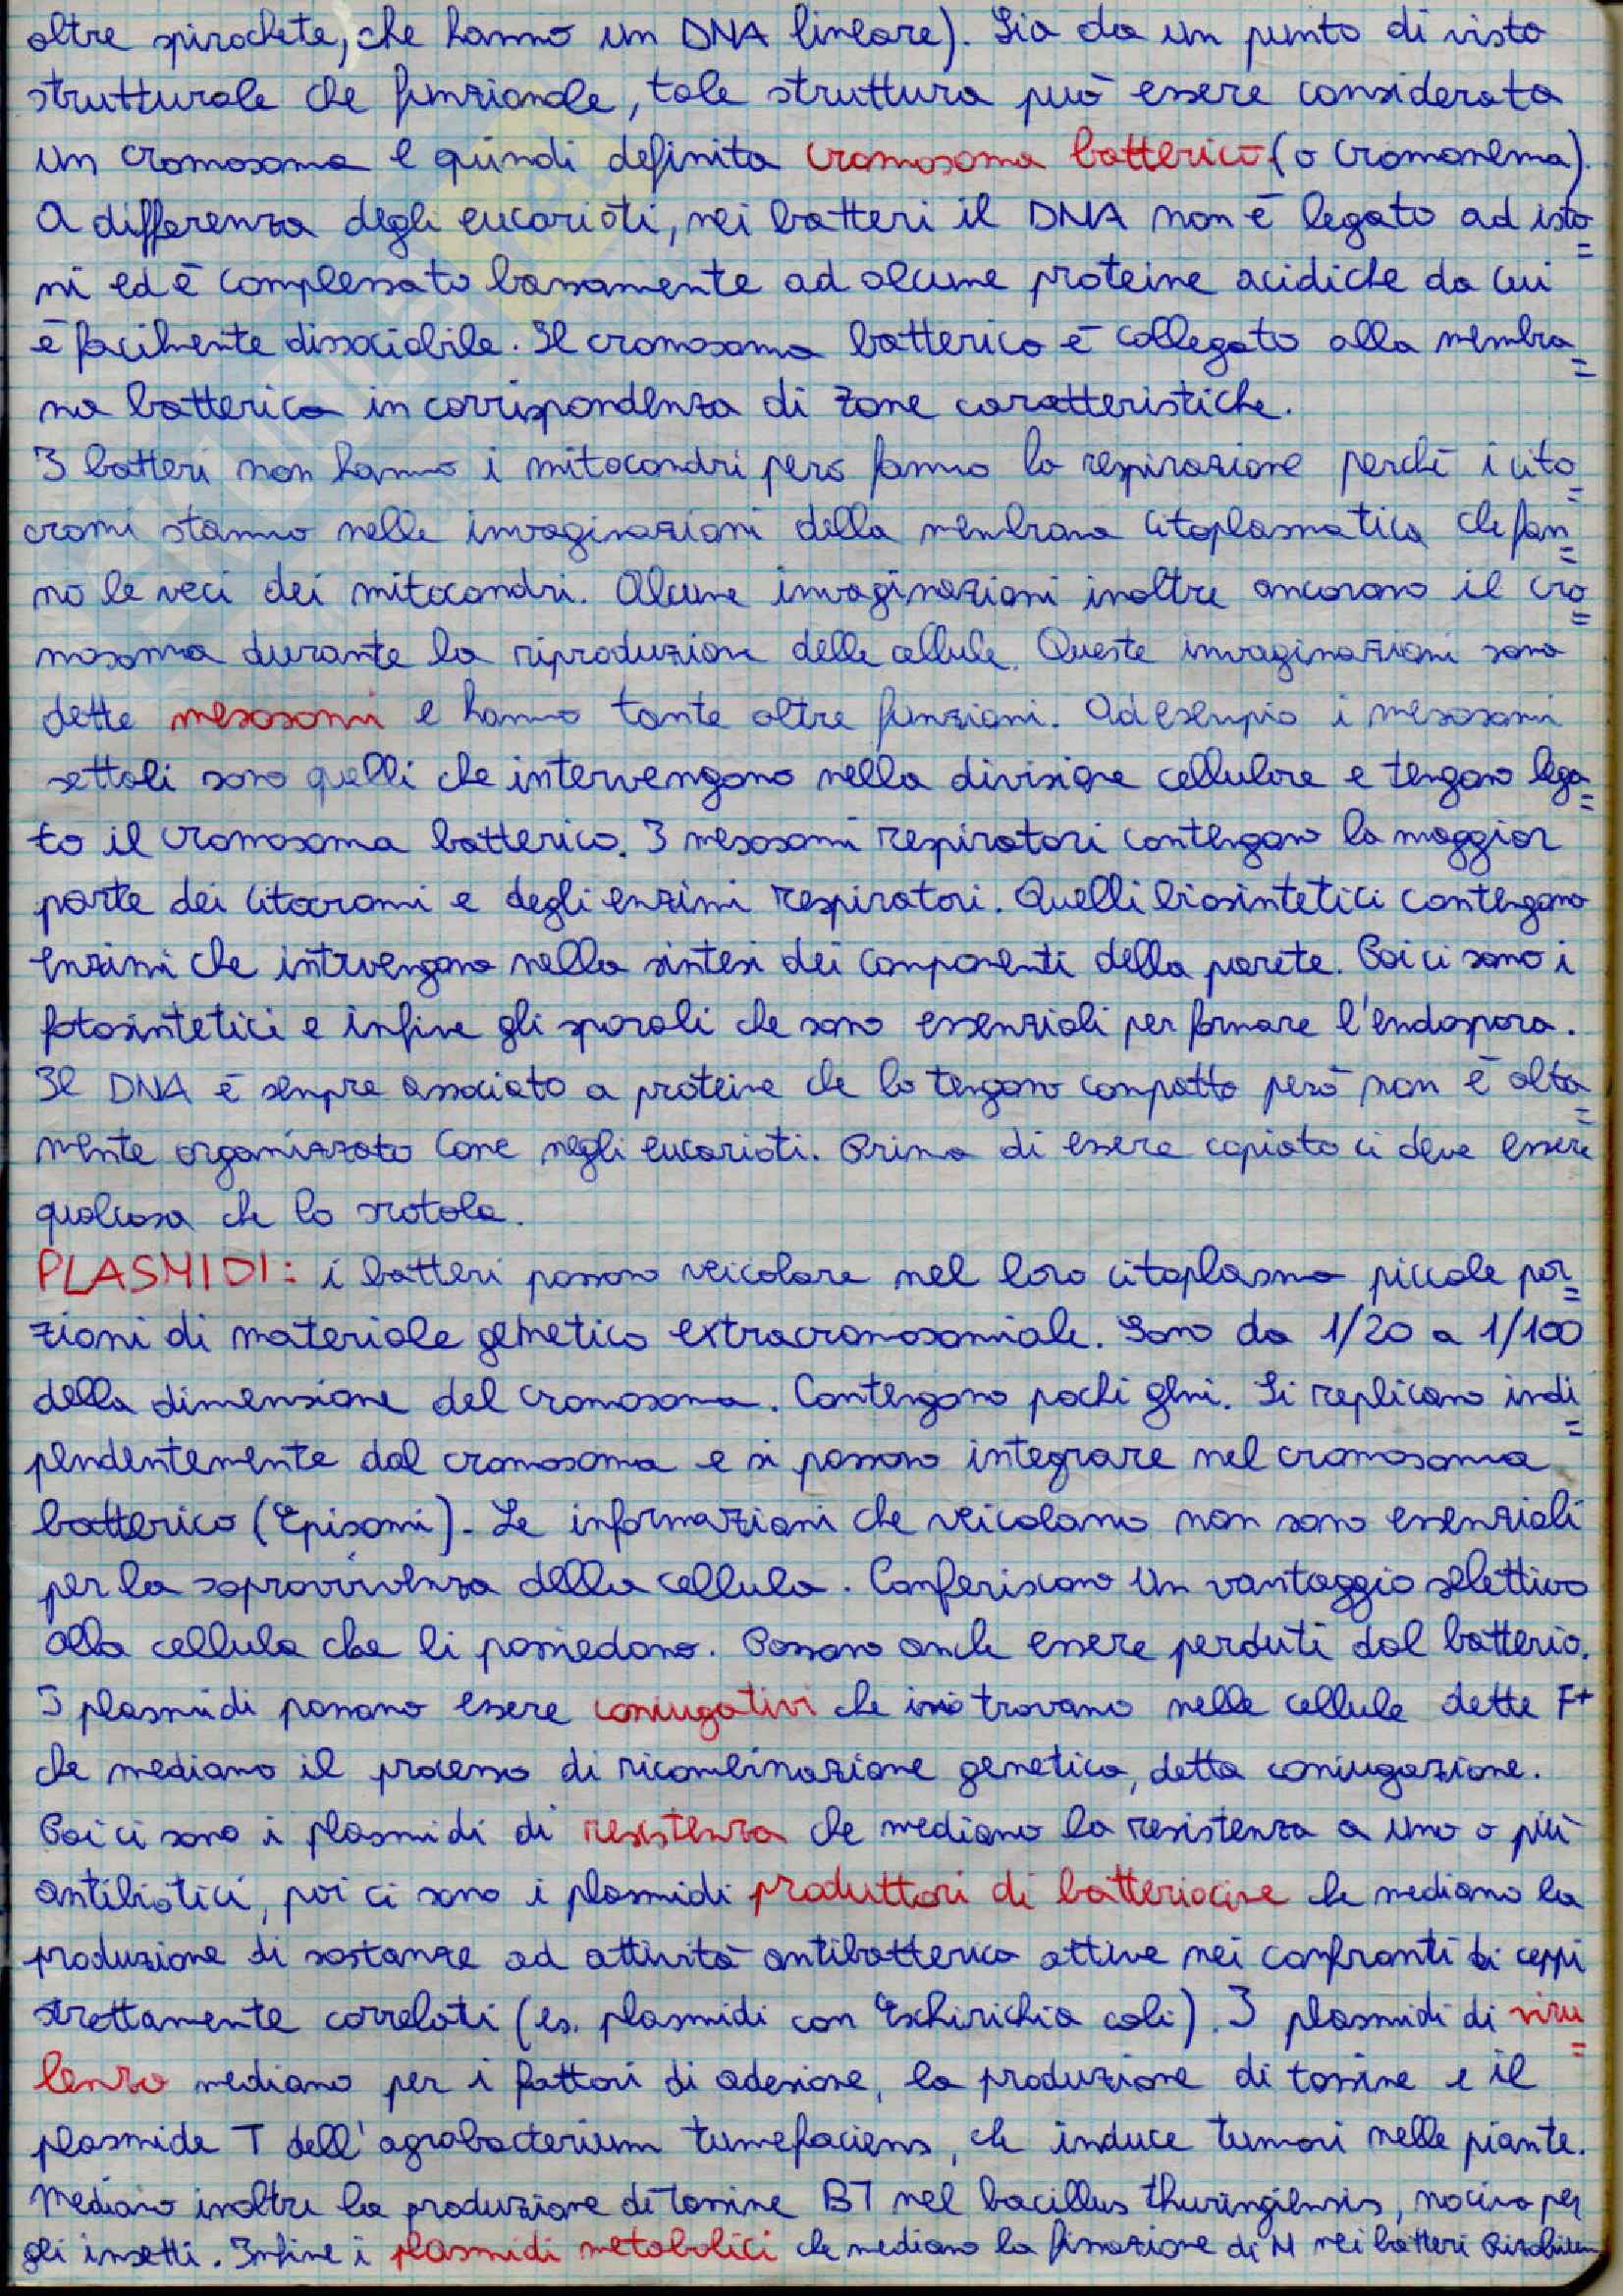 altre spirochete, che hanno un DNA lineare). Sia da un punto di vista
strutturale che funzionale, tale struttura può essere considerata
un cromosoma e quindi definita cromosoma batterico (o cromonema).
A differenza degli eucarioti, nei batteri il DNA non è legato ad isto=
ni ed è complessato lassamente ad alcune proteine acidiche da cui
è facilmente dissociabile. Il cromosoma batterico è collegato alla membra=
na batterica in corrispondenza di zone caratteristiche.
I batteri non hanno i mitocondri però fanno la respirazione perché i cito=
cromi stanno nelle invaginazioni della membrana citoplasmatica che fan=
no le veci dei mitocondri. Alcune invaginazioni inoltre ancorano il cro=
mosoma durante la riproduzione delle cellule. Queste invaginazioni sono
dette mesosomi e hanno tante altre funzioni. Ad esempio i mesosomi
settali sono quelli che intervengono nella divisione cellulare e tengono lega=
to il cromosoma batterico. I mesosomi respiratori contengono la maggior
parte dei citocromi e degli enzimi respiratori. Quelli biosintetici contengono
enzimi che intervengono nella sintesi dei componenti della parete. Poi ci sono i
fotosintetici e infine gli sporali che sono essenziali per formare l'endospora.
Il DNA è sempre associato a proteine che lo tengono compatto però non è alta=
mente organizzato come negli eucarioti. Prima di essere copiato ci deve essere
qualcosa che lo srotola.
PLASMIDI: i batteri possono veicolare nel loro citoplasma piccole por=
zioni di materiale genetico extracromosomiale. Sono da 1/20 a 1/100
della dimensione del cromosoma. Contengono pochi geni. Si replicano indi=
pendentemente dal cromosoma e si possono integrare nel cromosoma
batterico (Episomi). Le informazioni che veicolano non sono essenziali
per la sopravvivenza della cellula. Conferiscono un vantaggio selettivo
alla cellula che li possiedono. Possono anche essere perduti dal batterio.
I plasmidi possono essere coniugativi che si trovano nelle cellule dette F+
che mediano il processo di ricombinazione genetica, detta coniugazione.
Poi ci sono i plasmidi di resistenza che mediano la resistenza a uno o più
antibiotici, poi ci sono i plasmidi produttori di batteriocine che mediano la
produzione di sostanze ad attività antibatterica attive nei confronti di ceppi
strettamente correlati (es. plasmidi con Eschirichia coli). I plasmidi di viru=
lenza mediano per i fattori di adesione, la produzione di tossine e il
plasmide T dell'agrobacterium tumefaciens, che induce tumori nelle piante.
Mediano inoltre la produzione di tossine BT nel bacillus thuringiensis, nociva per
gli insetti. Infine i plasmidi metabolici che mediano la fissazione di N nei batteri Rizobium